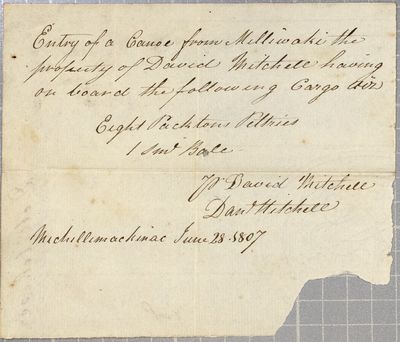 Entry of a Canoe from Milliwaki the
property of David Mitchell having
on board the following Cargo viz
Eight Packtons Peltries
1 Sml Bale
Pr David Mitchell
Danl Mitchell
Michillimackinac June 28. 1807